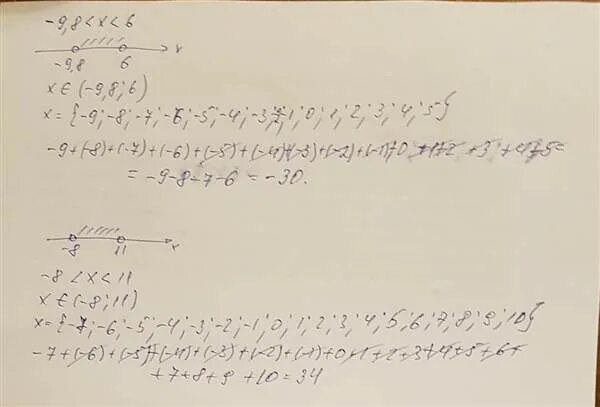 -9,8 < x < 6
-9,8 6 x
x ∈ (-9,8; 6)
x = {-9; -8; -7; -6; -5; -4; -3; -2; -1; 0; 1; 2; 3; 4; 5}
-9+(-8)+(-7)+(-6)+(-5)+(-4)+(-3)+(-2)+(-1)+0+1+2+3+4+5=
= -9-8-7-6 = -30.
-8 11 x
-8 < x < 11
x ∈ (-8; 11)
x = {-7; -6; -5; -4; -3; -2; -1; 0; 1; 2; 3; 4; 5; 6; 7; 8; 9; 10}
-7+(-6)+(-5)+(-4)+(-3)+(-2)+(-1)+0+1+2+3+4+5+6+
+7+8+9+10=34